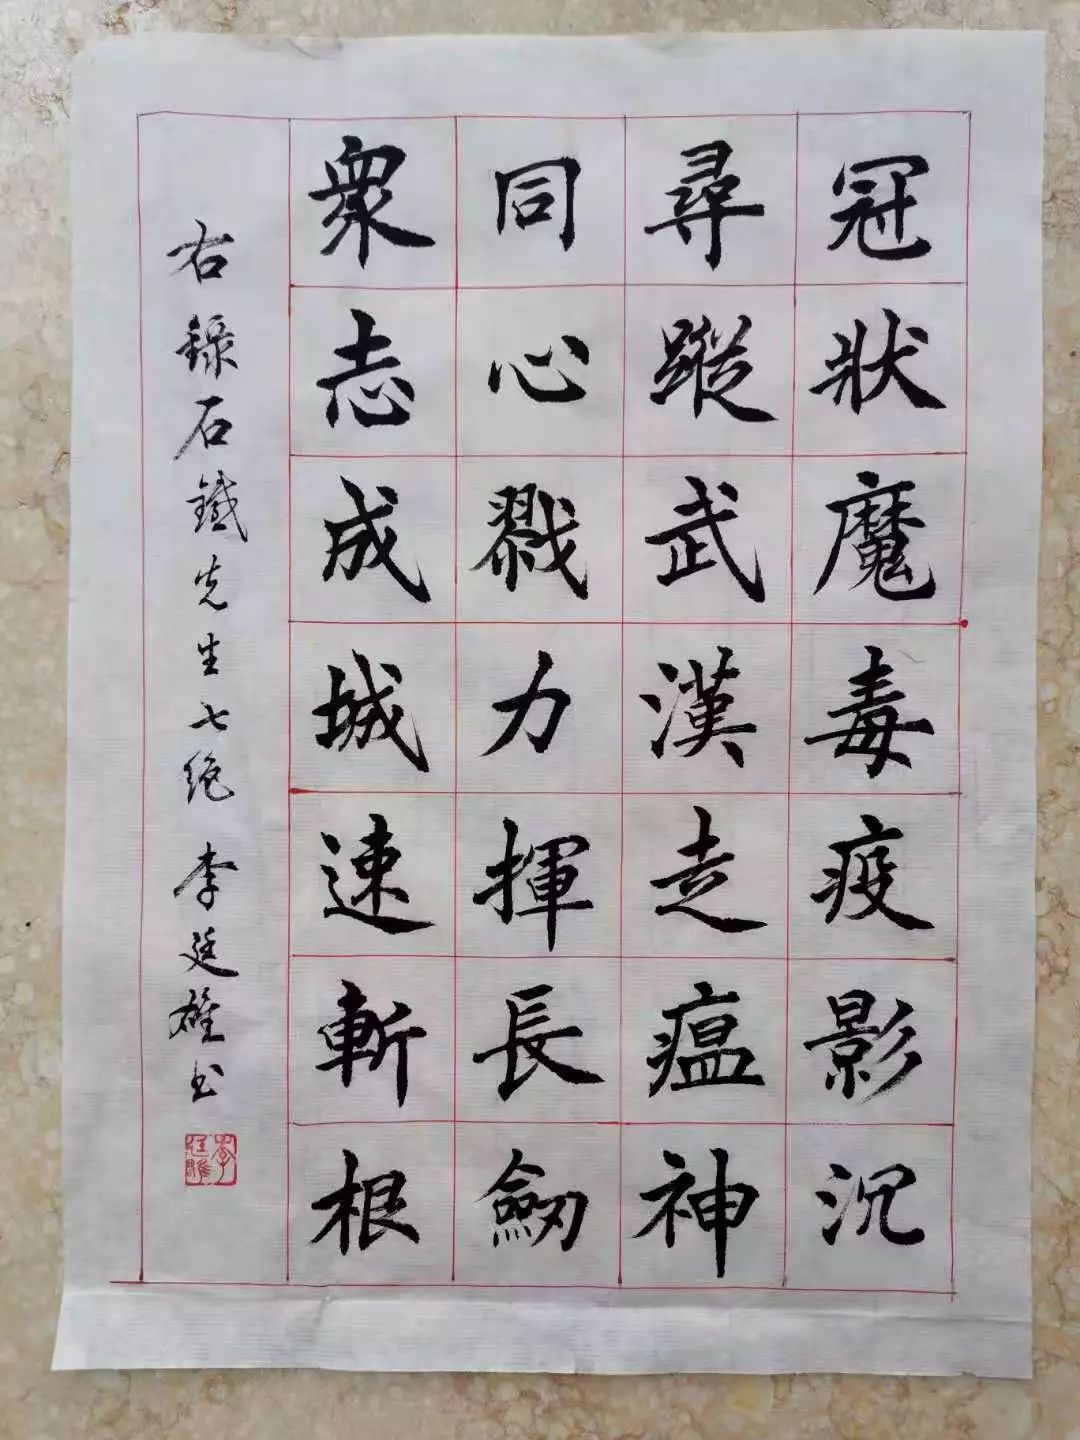 冠狀魔毒疫影沉
尋蹤武漢走瘟神
同心戮力揮長劒
衆志成城速斬根
右録石鐵先生七绝 李廷雄书
李廷雄